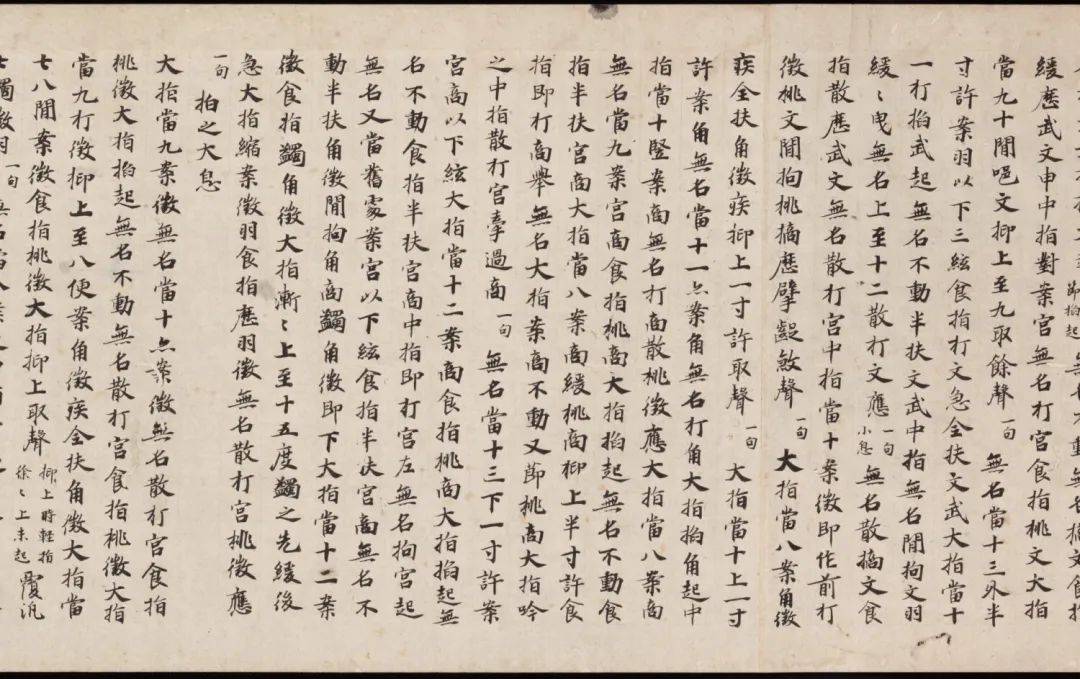 即掐起
緩歷武文申中指對案宮無名打宮食指桃文大指
當九十間吧文抑上至九取餘聲 一句 無名當十三外半
寸許案羽以下三絃食指打文急全扶文武大指當十
一打掐武起無名不動半扶文武中指無名間拘文羽
緩〻曳無名上至十二散打文應 一句 小息 無名散擿文食
指散歷武文無名散打宮中指當十案徵即作前打
徵桃文間拘桃擿歷擘齪斂聲 一句 大指當八案角徵
疾全扶角徵疾抑上一寸許取聲 一句 大指當十上一寸
許案角無名當十一点案角無名打角大指掐角起中
指當十竪案商無名打商散桃徵應大指當八案商
無名當九案宮商食指桃商大指掐起無名不動食
指半扶宮商大指當八案商緩桃商抑上半寸許食
指即打商舉無名大指案商不動又節桃商大指吟
之中指散打宮牽過商 一句 無名當十三下一寸許案
宮商以下絃大指當十二案商食指桃商大指掐起無
名不動食指半扶宮商中指即打宮左無名拘宮起
無名又當舊處案宮以下絃食指半扶宮商無名不
動半扶角徵間拘角商蠲角徵即下大指當十二案
徵食指蠲角徵大指漸〻上至十五度蠲之先緩後
急大指縮案徵羽食指歷羽徵無名散打宮桃徵應
一句
拍之大息
大指當九案徵無名當十点案徵無名散打宮食指
桃徵大指掐起無名不動無名散打宮食指桃徵大指
當九打徵抑上至八便案角徵疾全扶角徵大指當
七八間案徵食指桃徵大指抑上取聲 抑上時輕指徐〻上未起 覆汎